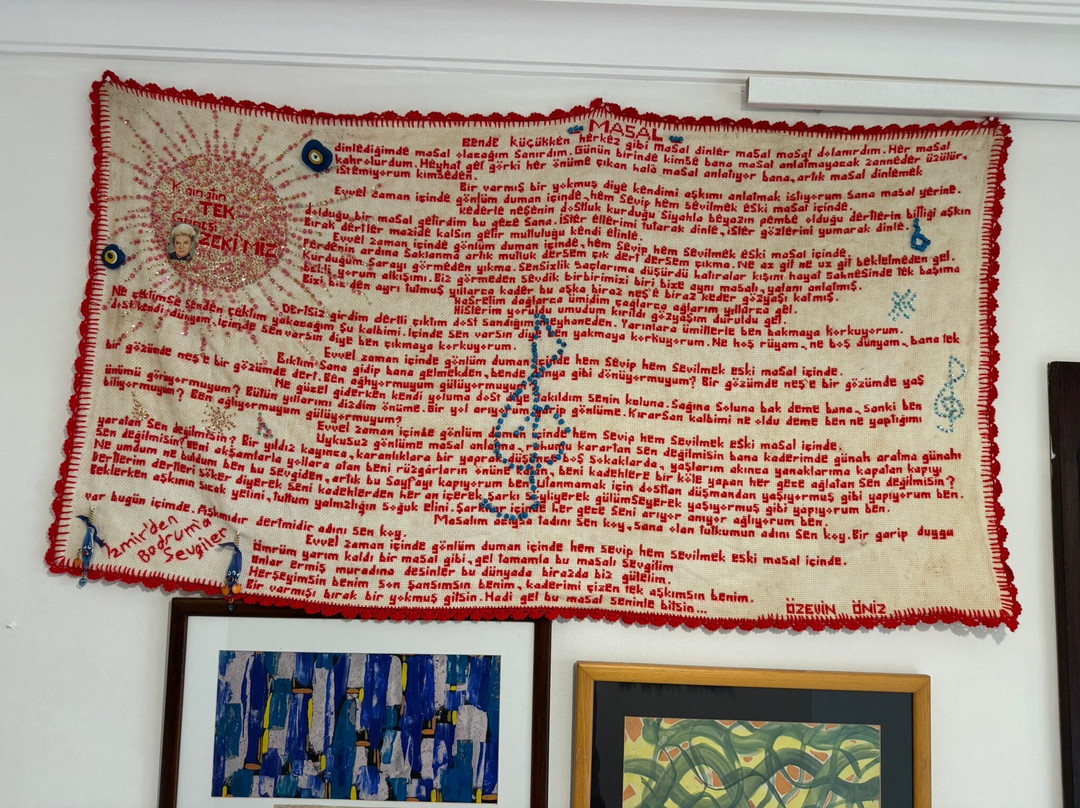 MASAL
Kainatın
TEK
Güneşi
ZEKİ MİZ
Bende küçükken herkez gibi masal dinler masal masal dolanırdım. Her masal
dinlediğimde masal olacağım sanırdım. Günün birinde kimse bana masal anlatmayacak zanneder üzülür,
kahrolurdum. Heyhat gel görki her önüme çıkan halâ masal anlatıyor bana, artık masal dinlemek
istemiyorum kimseden.
Bir varmış bir yokmuş diye kendimi aşkımı anlatmak istiyorum sana masal yerine.
Evvel zaman içinde gönlüm duman içinde, hem sevip hem sevilmek eski masal içinde.
kederle neşenin dostluk kurduğu siyahla beyazın pembe olduğu dertlerin bittiği aşkın
dolduğu bir masal getirdim bu gece sana. ister ellerimi tutarak dinle, ister gözlerini yumarak dinle.
Bırak dertler mazide kalsın getir mutluluğu kendi elinle.
Evvel zaman içinde gönlüm duman içinde, hem sevip hem sevilmek eski masal içinde.
Perdenin arkasına saklanma artık mutluk dersem çık dert dersem çıkma. Ne az git ne uz git bekletmeden gel.
Kurduğun sarayı görmeden yıkma. Sensizlik saçlarıma düşürdü hatıralar kışın hayat sahnesinde tek başıma
Bekliyorum alkışımı. Biz görmeden sevdik birbirimizi biri bize aynı masalı, yalanı anlatmış.
Bizi bizden ayrı tutmuş yıllarca kader bu aşka biraz neş'e biraz keder gözyaşı katmış.
Hasretim dağlarca ümidim çağlarca ağlarım yıllarca gel.
Hislerim yoruldu umudum kırıldı gözyaşım duruldu gel.
Dertsiz girdim dertli çıktım dost sandığım meyhaneden. Yarınlara ümitlerle ben bakmaya korkuyorum.
Ne çektimse senden çektim yakacağım şu kalbimi. içinde sen varsın diye ben yakmaya korkuyorum. Ne hoş rüyam, ne boş dünyam, bana tek
dost kendi dünyam, içinde sen varsın diye ben çıkmaya korkuyorum.
Evvel zaman içinde gönlüm duman içinde hem sevip hem sevilmek eski masal içinde.
Bıktımsana gidip bana gelmekden, bende gibi dönüyormuyum? Bir gözümde neş'e bir gözümde yaş
bir gözünde neş'e bir gözümde dert. Ben ağlıyormuyum gülüyormuyum
Ne güzel giderken kendi yoluma dost diye takıldım senin koluna. Sağına soluna bak deme bana, sanki ben
önümü görüyormuyum? Bütün yıllarımı dizdim önüme. Bir yol arıyor gönlüme. Kırarsan kalbimi ne oldu deme ben ne yaptığımı
biliyormuyum? Ben ağlıyormuyum gülüyormuyum?
Evvel zaman içinde gönlüm duman içinde hem sevip hem sevilmek eski masal içinde.
Uykusuz gönlüme masal anlatıp kararlan sen değilmisin bana kaderimde günah aratma günahı
yaratan sen değilmisin? Bir yıldız kayınca, karanlıklara bir yaprak boş sokaklarda, yaşlarım akınca yanaklarıma kapatan kapıyı
sen değilmisin? Her akşamlarla yollara atan beni rüzgârların önüne katan beni kadehlere bir köle yapan her gece ağlatan sen değilmisin?
Ne umdum ne buldum ben bu sevgiden, artık bu sayfayı kapıyorum ben. inanmamak için dostları düşmandan yaşıyormuş gibi yapıyorum ben.
Dertlerim dertleri söker diyerek seni kadehlerden her an içerek şarkı söyliyerek gülümseyerek yaşıyormuş gibi yapıyorum ben.
Beklerken aşkının sıcak yelini, tuttum yalnızlığın soğuk elini. her gece seni arıyor anıyor ağlıyorum ben.
Masalım acıysa tadını sen koy, sana olan tutkumun adını sen koy. Bir garip duygu
var bugün içimde. Aşkmıdır dertmidir adını sen koy.
Evvel zaman içinde gönlüm duman içinde hem sevip hem sevilmek eski masal içinde.
Ömrüm yarım kaldı bir masal gibi, gel tamamla bu masalı sevgilim
Onlar ermiş muradına desinler bu dünyada birazda biz gülelim.
Herşeyimsin benim son şansımsın benim, kaderimi çizen tek aşkımsın benim.
Bir varmışı bırak bir yokmuş gitsin. Hadi gel bu masal seninle bitsin...
İzmir'den
Bodruma
Sevgiler
ÖZEVİN ÖNİZ